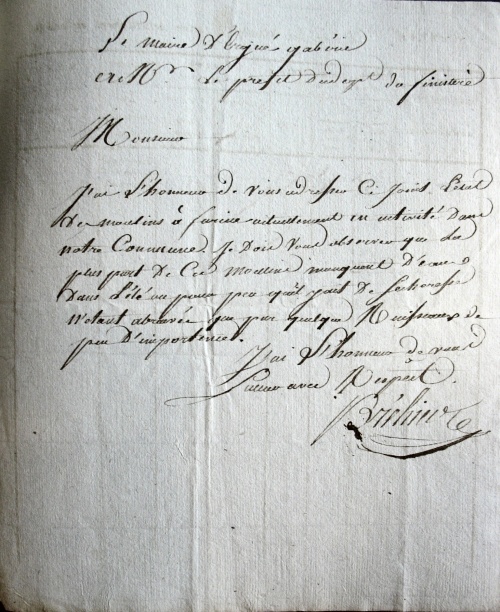 Le maire d'Ergué gabéric
a Mr le prefet du dept du finistère
Monsieur
J'ai l'honneur de vous adresser Ci Joint L'etat
De moulins à farine actuellement en activité Dans
notre Commune. Je Dois Vous observer que La
plus part De Ces moulins manquent D'eau
Dans L'été ou pour peu qu'il fait De secheresse
N'étant abreuvés que par quelque Ruisseaux de
peu D'importence.
J'ai l'honneur de vous
saluer avec Respect.